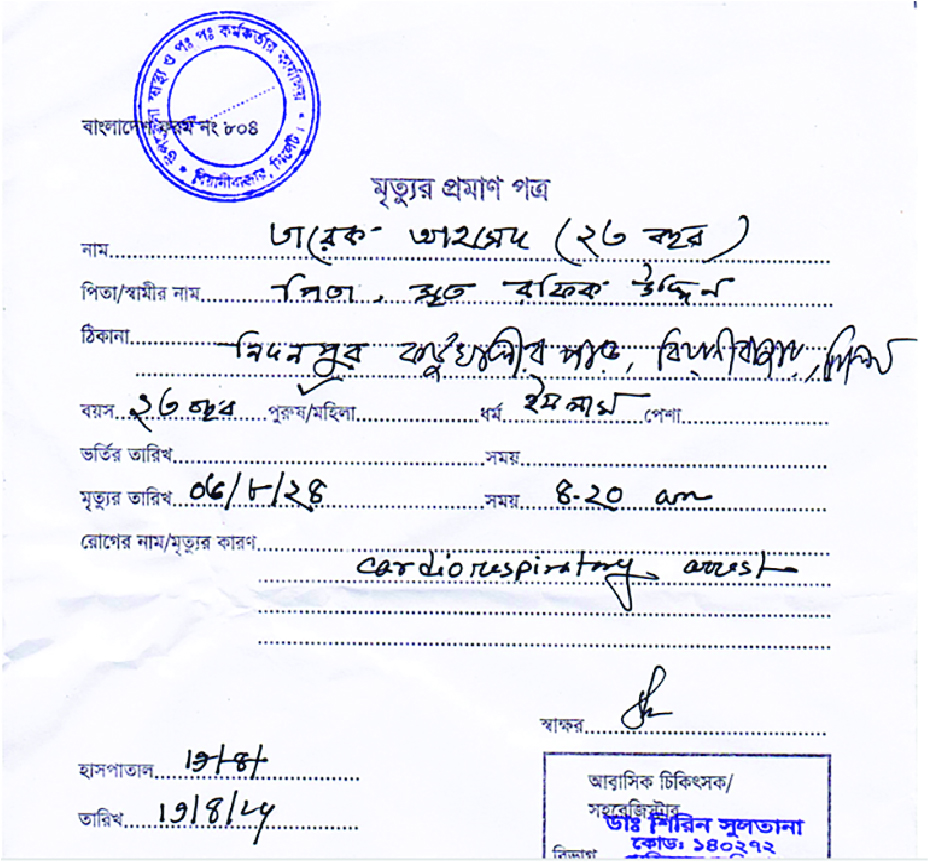 উপজেলা স্বাস্থ্য ও পঃ পঃ কর্মকর্তার কার্যালয় * বিয়ানীবাজার, সিলেট। *
বাংলাদেশ ফরম নং ৮০৪
মৃত্যুর প্রমাণ পত্র
নাম তারেক আহমেদ (২৩ বছর)
পিতা/স্বামীর নাম পিতা, মৃত রফিক উদ্দিন
ঠিকানা
নিদনপুর পাড়, বিয়ানীবাজার, সিলেট
বয়স ২৩ বছর পুরুষ/মহিলা ধর্ম ইসলাম পেশা
ভর্তির তারিখ সময়
মৃত্যুর তারিখ ০৬/৮/২৪ সময় ৪.২০ am
রোগের নাম/মৃত্যুর কারণ
cardiorespiratory arrest
স্বাক্ষর
হাসপাতাল
তারিখ 19/8/24
আবাসিক চিকিৎসক/
সহরেজিষ্টার
ডাঃ শিরিন সুলতানা
কোডঃ ১৪০২৭২
বিভাগ